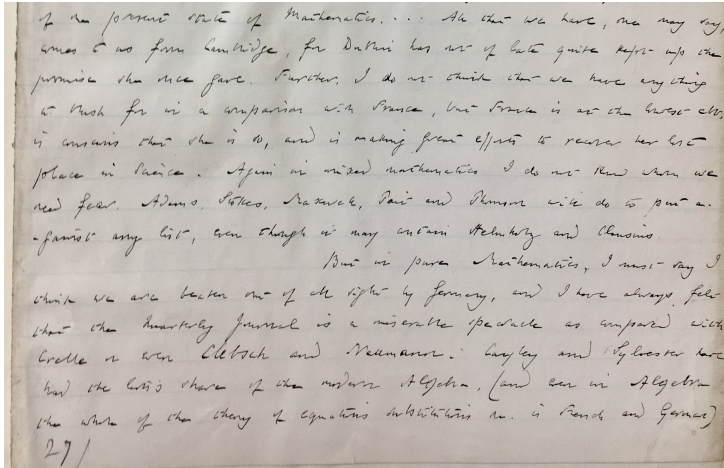 of the present state of Mathematics. . . . All that we have, one may say,
comes to us from Cambridge, for Dublin has not of late quite kept up the
promise she once gave. Further, I do not think that we have anything
to blush for in a comparison with France, but France is at the lowest ebb,
is conscious that she is so, and is making great efforts to recover her lost
place in Science. Again in mixed mathematics I do not know whom we
need fear. Adams, Stokes, Maxwell, Tait and Thomson will do to put a-
-gainst any list, even though it may contain Helmholtz and Clausius.
But in pure Mathematics, I must say I
think we are beaten out of all sight by Germany, and I have always felt
that the Quarterly Journal is a miserable spectacle as compared with
Crelle or even Clebsch and Neumann. Cayley and Sylvester have
had the lion's share of the modern Algebra, (and even in Algebra
the whole of the theory of equations substitutions &c. is French and German)
27)